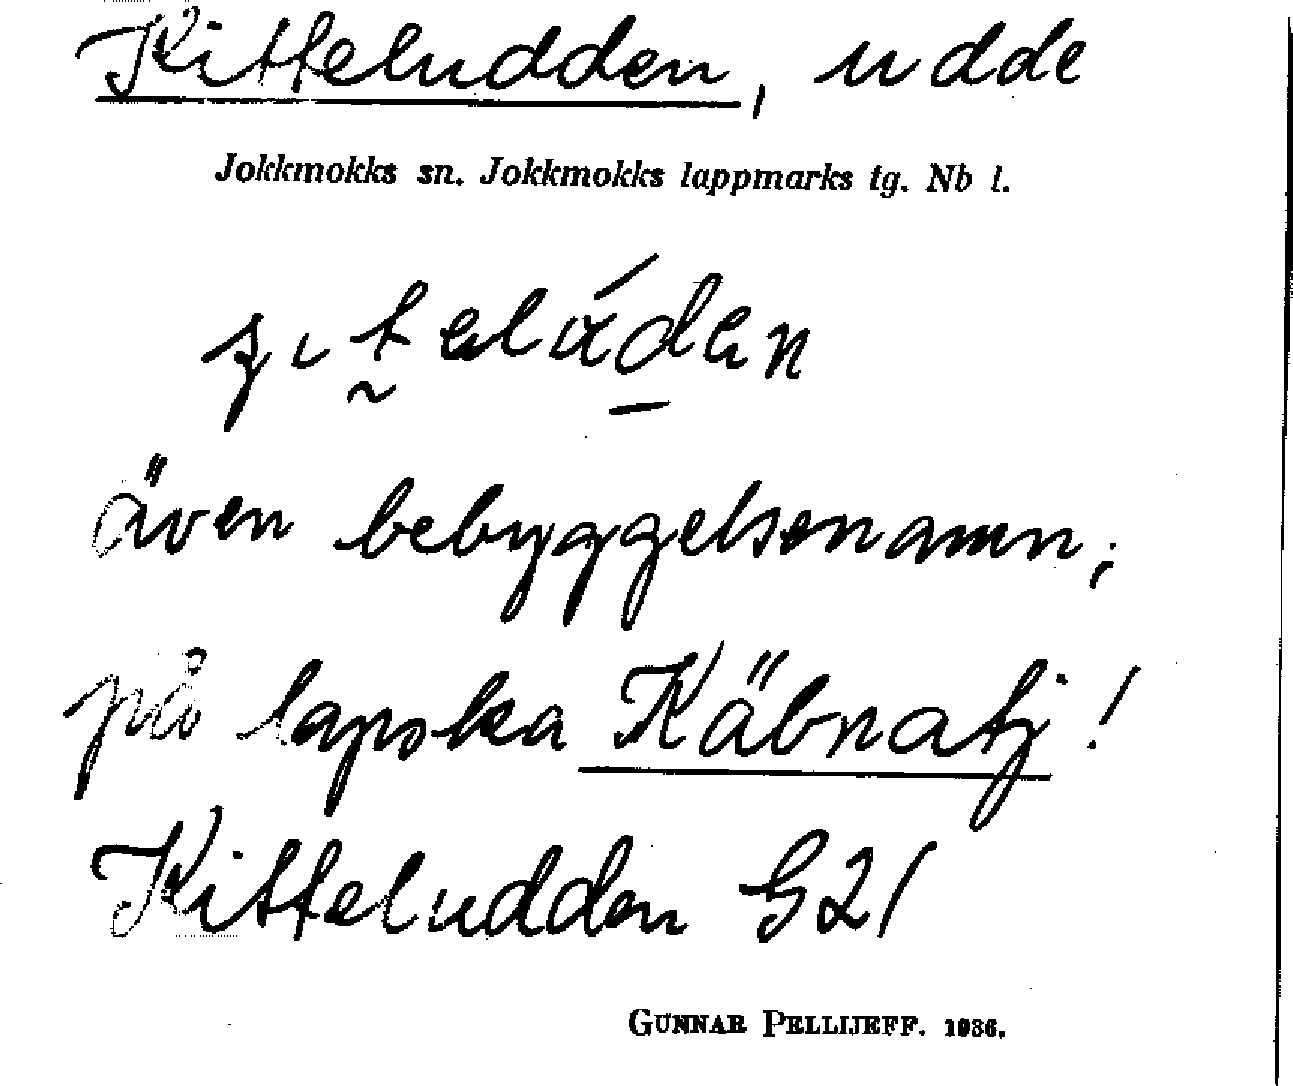 Kitteludden, udde
Jokkmokks sn. Jokkmokks lappmarks tg. Nb l.
även bebyggelsenamn;
på lapska Käbnatj!
Kitteludden G21
GUNNAR PELLIJEFF. 1936.